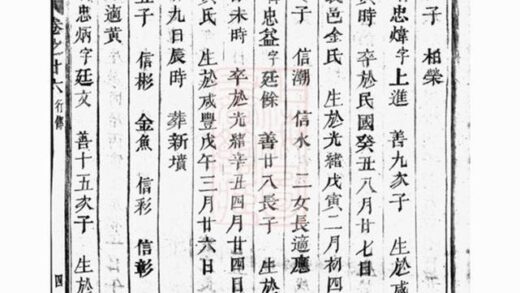 子 柏榮
忠煒字上進 善九次子 生於咸
時 卒於民國癸丑八月廿七日
邑金氏 生於光緒戊寅二月初四
子 信潮 信水 二女長適應
忠益字廷餘 善廿八長子 生於
未時 卒於光緒辛丑四月廿四日
氏 生於咸豐戊午三月廿六日
九日辰時 葬新墳
子 信彬 金魚 信彩 信彰
適黃
忠炳字廷文 善十五次子 生於
卷之廿六 行傳 四